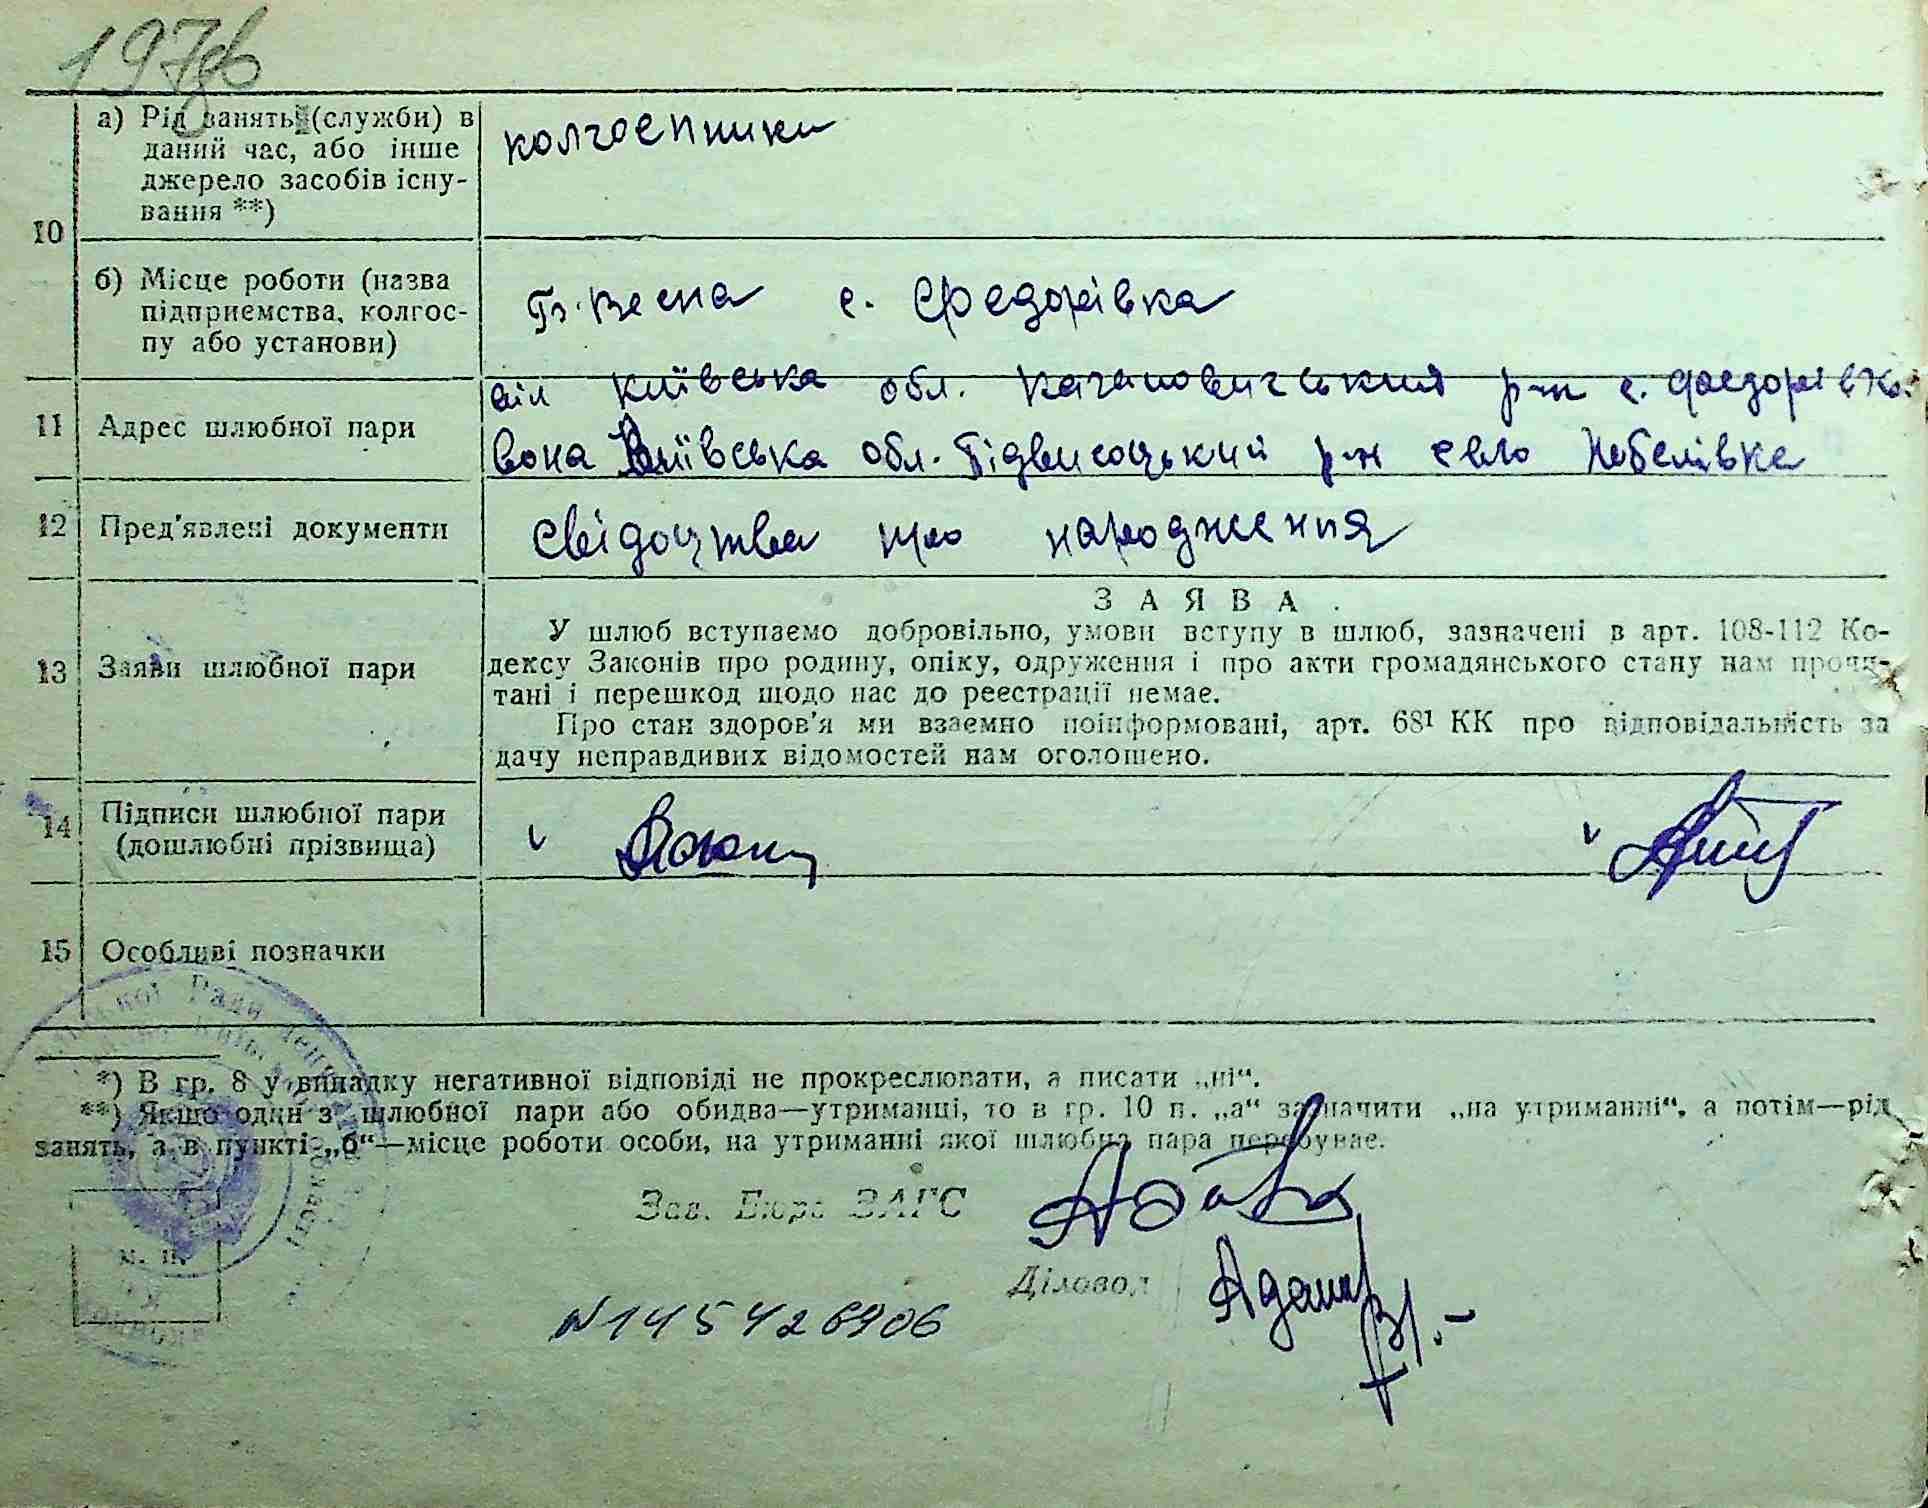 197зв
10
а) Рід занять (служби) в
даний час, або інше
джерело засобів існу-
вання **)
колгоспники
б) Місце роботи (назва
підприємства, колгос-
пу або установи)
Весна с. Федорівка
11
Адрес шлюбної пари
він Київська обл. Кагановичський р-н с. Федорівка
вона Київська обл. Підвисоцький р-н село Небелівка
12
Пред'явлені документи
Свідоцтва про народження
13
Заяви шлюбної пари
ЗАЯВА
У шлюб вступаємо добровільно, умови вступу в шлюб, зазначені в арт. 108-112 Ко-
дексу Законів про родину, опіку, одруження і про акти громадянського стану нам прочи-
тані і перешкод щодо нас до реєстрації немає.
Про стан здоров'я ми взаємно поінформовані, арт. 68¹ КК про відповідальність за
дачу неправдивих відомостей нам оголошено.
14
Підписи шлюбної пари
(дошлюбні прізвища)
15
Особливі позначки
*) В гр. 8 у випадку негативної відповіді не прокреслювати, а писати „ні“.
**) Якщо один з шлюбної пари або обидва—утриманці, то в гр. 10 п. „а“ зазначити „на утриманні“, а потім—рід
занять, а в пункті „б“—місце роботи особи, на утриманні якої шлюбна пара перебуває.
Зав. Бюро ЗАГС
м. п.
Діловод
N145426906